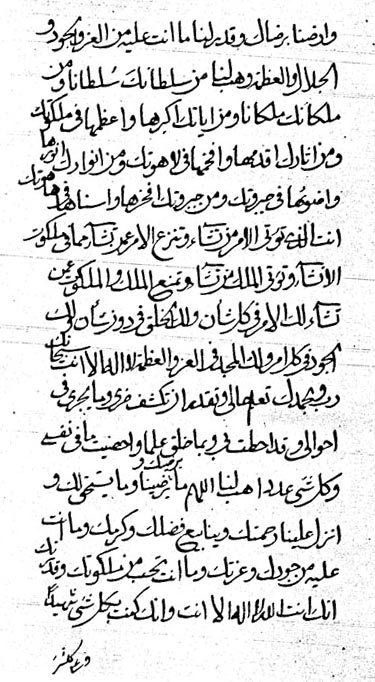 وارضنا برضاك وقدر لنا ما انت عليه من العز والجود و
الجلال والعظمة وهب لنا من سلطانك سلطانا ومن
ملكانك ملكانا ومن اياتك اكبرها واعظمها في ملكوتك
ومن اثارك اقدمها وافخمها في لاهوتك ومن انوارك انورها
واضوئها في جبروتك ومن جبروتك افخرها واسناها في هاهوتك
انت الذي تؤتي الامر من تشاء وتنزع الامر عمن تشاء مما في ملكوت
الانشاء وتؤتي الملك من تشاء وتمنع الملك والملكوت عمن
تشاء لك الامر في كل شان ولك الخلق في دون شان لك
الجود في كل امر ولك المجد في العز والعظمة لا اله الا انت سبحانك
رب وبحمدك تعلم حالي وتقدر ان تكشف ضري وما يجري في
احوالي وقد احطت في وبما خلق علما واحصيت ما في نفسي
وكل شيء عددا هب لنا اللهم ما يرضينا ويرضيك وما ينبغي لك و
انزل علينا رحمتك وينابيع فضلك وكرمك وما انت
عليه من جودك وعزتك وما انت تحب من ملكوتك وقدرتك
انك انت الله لا اله الا انت وانك كنت بكل شيء شهيدا